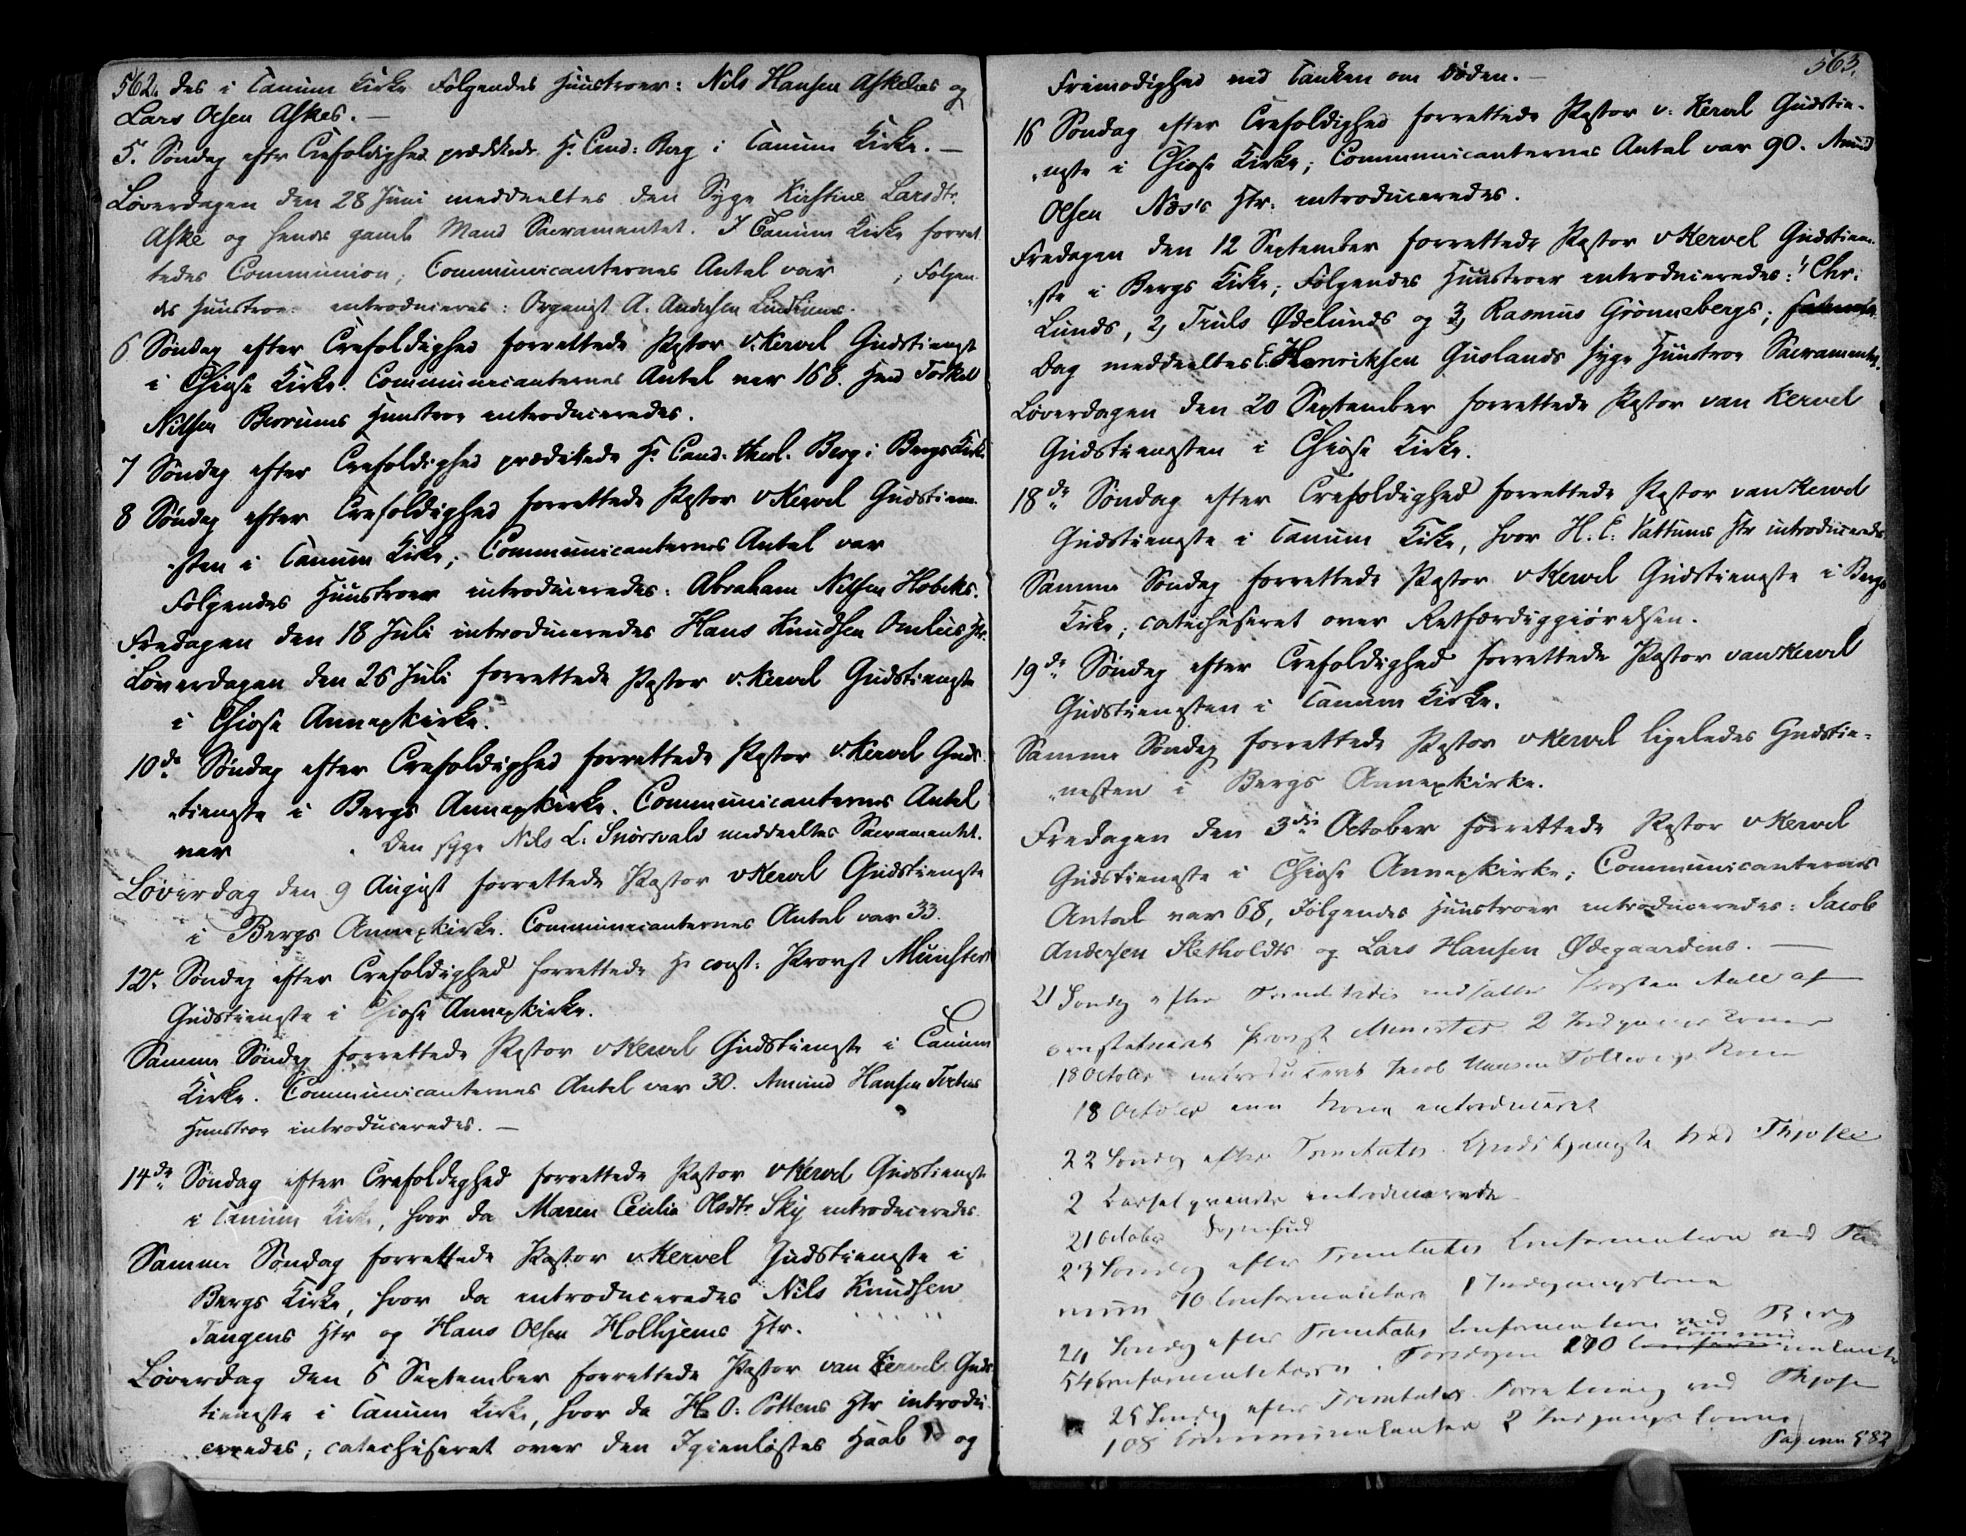 562. des i Tanum Kirke Følgendes Huustroer: Nils Hansen Askelies og
Lars Olsen Askes. —
5. Søndag eftr Trefoldighed prædikede Hr. Cand: Berg i Tanum Kirke. —
Løverdagen den 28 Juni meddeeltes den Syge Kirstine Larsdtr.
Aske og hendes gamle Mand Sacramentet. I Tanum Kirke forret
tedes Communion; Communicanternes Antal var ; Følgen
des Huustroe introduceres: Organist A. Andersen
6 Søndag efter Trefoldighed forrettede Pastor v. Kervel Gudstienste
i Thiose Kirke. Communicanternes Antal var 168. Torkel
Nilsen Berrums Huustroe introduceredes.
7 Søndag efter Trefoldighed prædikede Hr. Cand. theol. Berg i Bergs Kirke
8 Søndag efter Trefoldighed forrettede Pastor v Kervel Gudstien
sten i Tanum Kirke; Communicanternes Antal var
Følgendes Huustroer introduceredes: Abraham Nilsen Hobeks.
Fredagen den 18 Juli introduceredes Hans Knudsen Omlies Htr.
Løverdagen den 26 Juli forrettede Pastor v. Kervel Gudstienste
i Thiose Annexkirke.
10de Søndag efter Trefoldighed forrettede Pastor v. Kervel Guds
tienste i Bergs Annexkirke. Communicanternes Antal
var . Den syge Nils L. Snørsvald meddeeltes Sacramentet.
Løverdag den 9 August forrettede Pastor v Kervel Gudstienste
i Bergs Annexkirke. Communicanternes Antal var 33.
12te Søndag efter Trefoldighed forrettede Hr const: Provst Munster
Gudstienste i Thiose Annexkirke.
Samme Søndag forrettede Pastor v Kervel Gudstienste i Tanum
Kirke. Communicanternes Antal var 30. Amund Hansen
Huustroe introduceredes. —
14de Søndag efter Trefoldighed forrettede Pastor v Kervel Gudstienste
i Tanum Kirke, hvor da Maren Cecilia Olsdtr. Sky introduceredes
Samme Søndag forrettede Pastor v Kervel Gudstienste i
Bergs Kirke, hvor da introduceredes Nils Knudsen
Tangens Htr og Hans Olsen Holhjems Htr.
Løverdag den 6 September forrettede Pastor van Kervel Guds
tienste i Tanum Kirke, hvor da H. O. Pottens Htr introdu
ceredes; catechiseret over den Igienløstes Haab og
563.
Frimodighed ved Tanken om Døden. —
16 Søndag efter Trefoldighed forrettede Pastor v. Kervel Gudstie-
neste i Thiose Kirke; Communicanternes Antal var 90. Amund
Olsen Næs's Htr. introduceredes.
Fredagen den 12 September forrettede Pastor v Kervel Gudstien
ste i Bergs Kirke; Følgendes Huustroer introduceredes: 1, Chr:
Lunds, 2, Truls Ødelunds og 3, Rasmus Grønnebergs;
Dag meddeeltes E. Henriksen Guslands syge Huustroe Sacramentet.
Løverdagen den 20 September forrettede Pastor van Kervel
Gudstiensten i Thiose Kirke.
18de Søndag efter Trefoldighed forrettede Pastor van Kervel
Gudstienste i Tanum Kirke, hvor H. E. Vattums Htr introduceredes
Samme Søndag forrettede Pastor v Kervel Gudstienste i Bergs
Kirke; catechiseret over Retfærdiggiørelsen.
19de Søndag efter Trefoldighed forrettede Pastor van Kervel
Gudstiensten i Tanum Kirke.
Samme Søndag forrettede Pastor v Kervel ligeledes Gudstie-
nesten i Bergs Annexkirke.
Fredagen den 3die October forrettede Pastor v Kervel
Gudstienste i Thiose Annexkirke; Communicanternes
Antal var 68, Følgendes Huustroer introduceredes: Jacob
Andersen Sletholdts og Lars Hansen Ødegaardens. —
21 Søndag efter Trinitatis indsattes Presten Aall af
constitueret Provst Munster 2 Indgangs Koner
18 October introduceret Jacob Hansen Kone
18 October een Kone introduceret
22 Søndag efter Trinitatis Gudstjeneste ved Thjose
2 introducerede
21 October Sognebud
23 Søndag efter Trinitatis Confirmation ved Ta
num 70 Confirmanter 1 Indgangskone
24 Søndag efter Trinitatis Confirmation ved Berg
54 Confirmanter. Torsdagen 290 Communikanter
25 Søndag efter Trinitatis Forretning ved Thjose
108 Communikanter 2 Indgangs koner
Pag 582